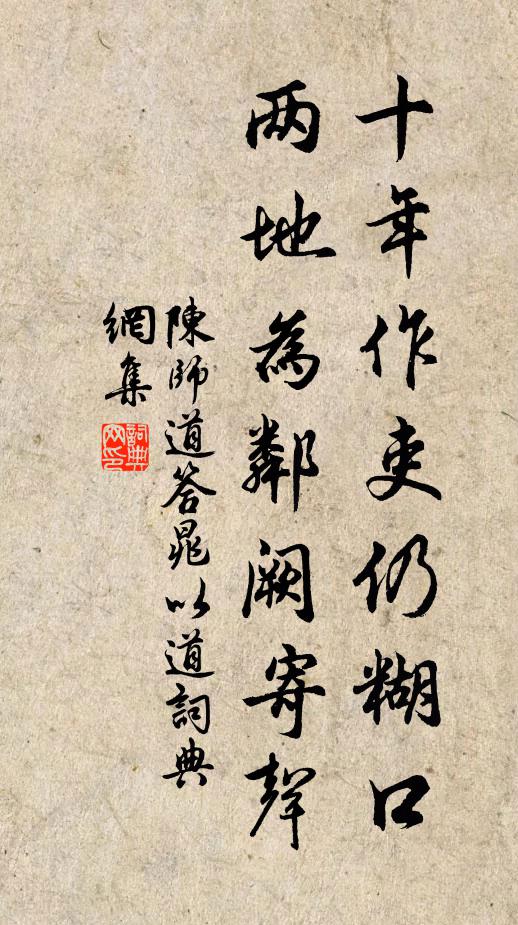 十年作吏仍糊口
两地為鄰阙寄聲
陳師道答晁以道詞典
網集
詞典网印